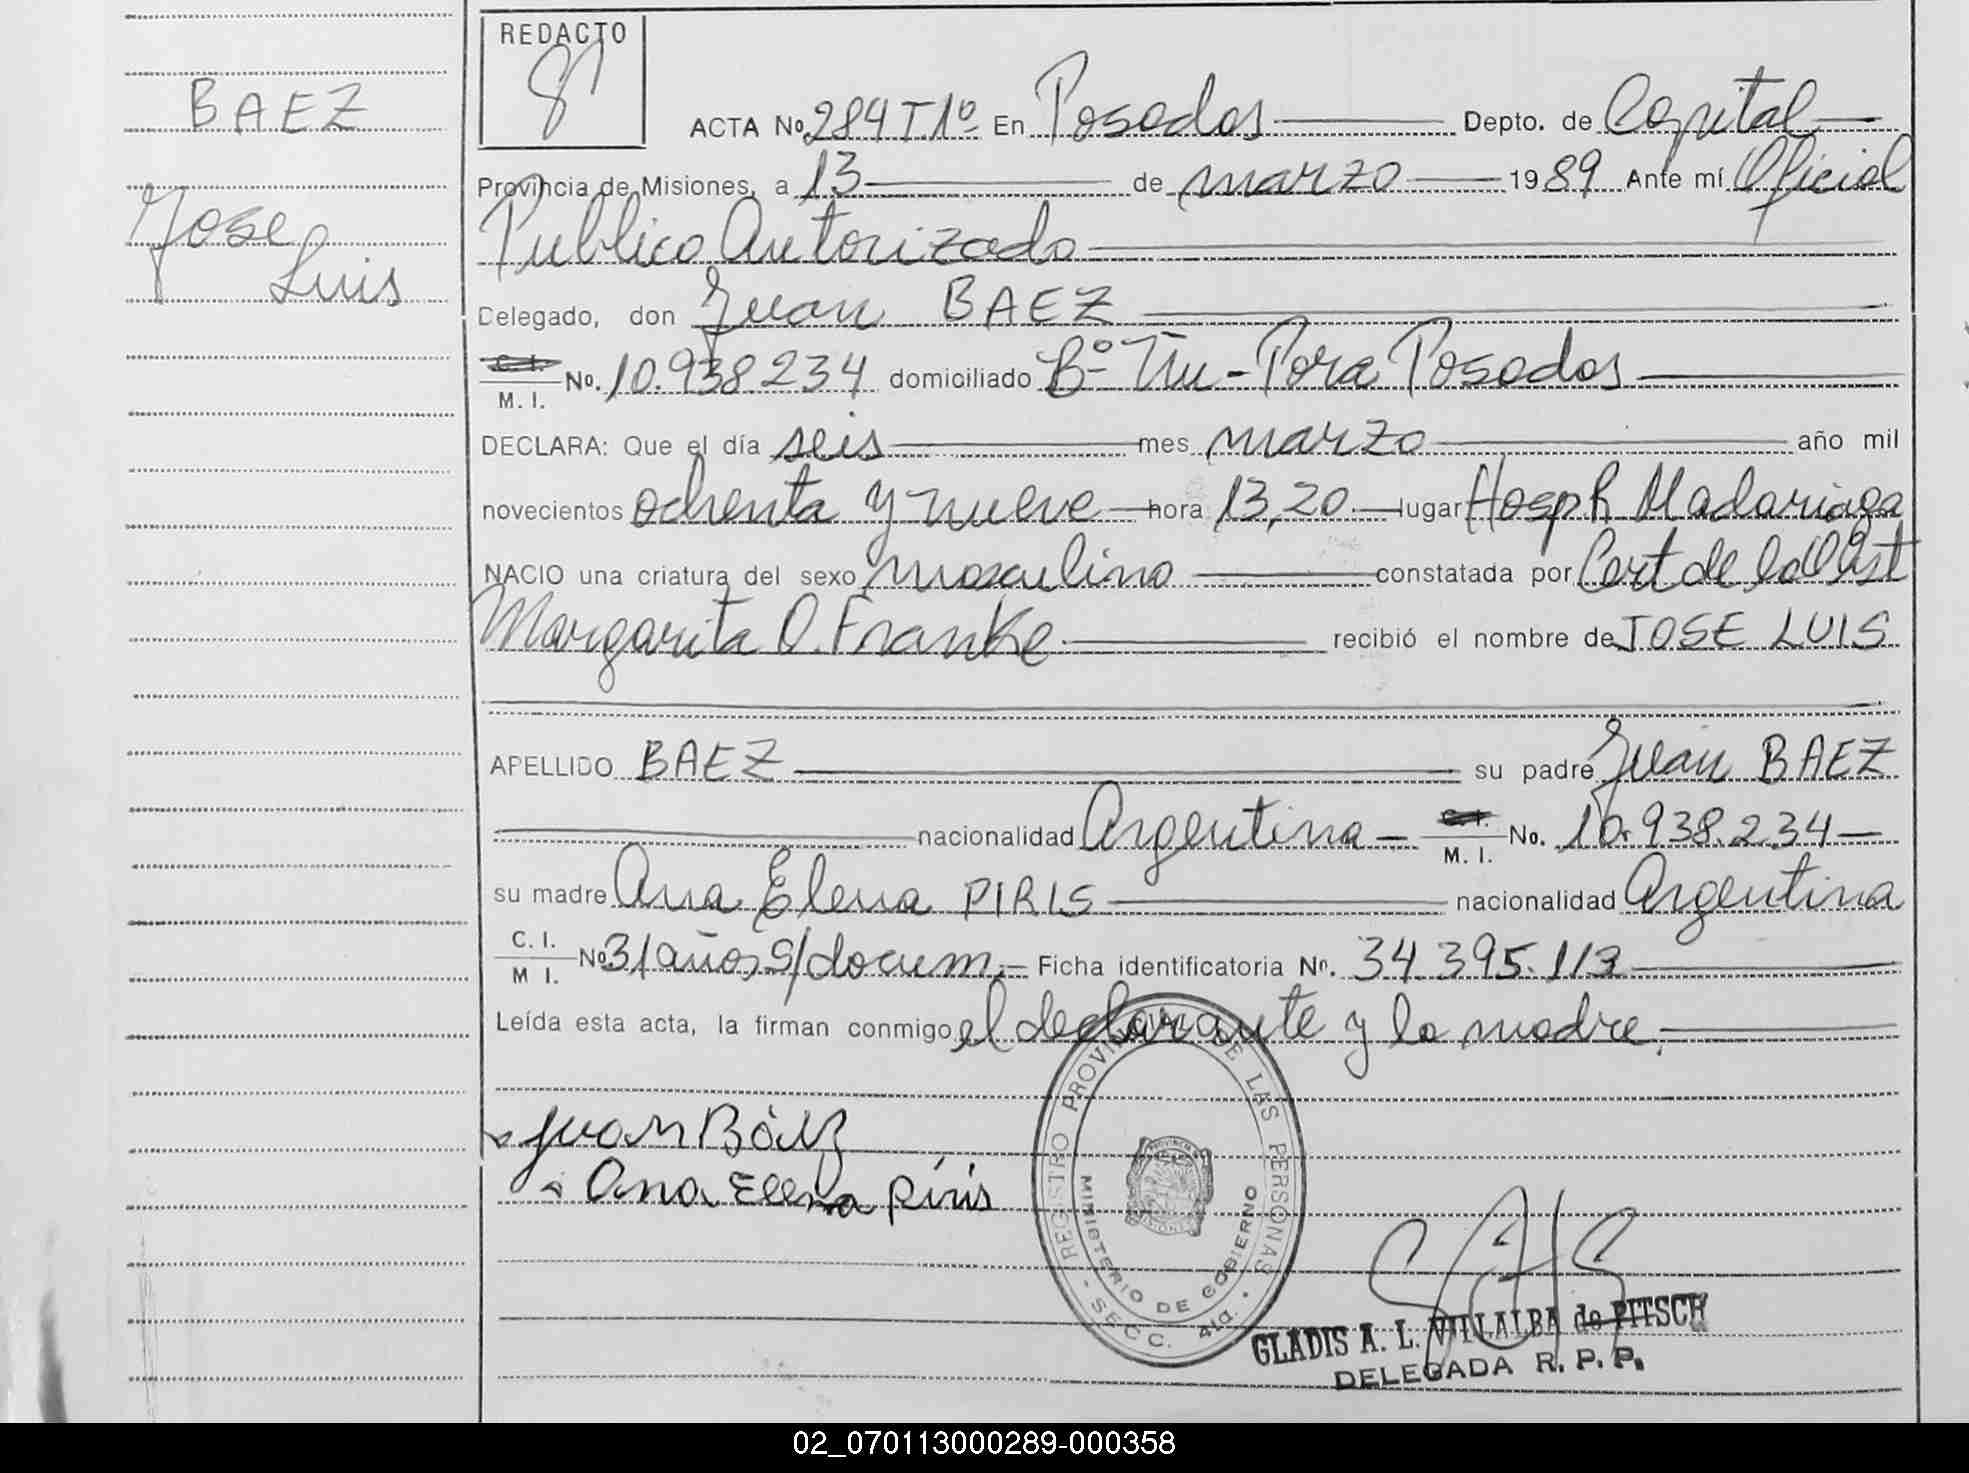 REDACTO
BAEZ
Jose
Luis
ACTA No. 284 T1º En Posadas Depto. de Capital
Provincia de Misiones, a 13 de marzo 1989 Ante mí Oficial
Publico Autorizado
Delegado, don Juan BAEZ
C. I.
M. I. No. 10.938.234 domiciliado Bº Ñu-Pora Posadas
DECLARA: Que el día seis mes marzo año mil
novecientos ochenta y nueve hora 13,20 lugar Hosp R Madariaga
NACIO una criatura del sexo masculino constatada por Cert de la Obst
Margarita O. Franke recibió el nombre de JOSE LUIS
APELLIDO BAEZ su padre Juan BAEZ
nacionalidad Argentina C. I. M. I. No. 10.938.234
su madre Ana Elena PIRIS nacionalidad Argentina
C. I. M I. No 31 años s/docum. Ficha identificatoria No. 34.395.113
Leída esta acta, la firman conmigo el declarante y la madre.
Juan Báez
Ana Elena Piris
REGISTRO PROVINCIAL DE LAS PERSONAS
MINISTERIO DE GOBIERNO
SECC. 4ta.
GLADIS A. L. VILLALBA de PITSCH
DELEGADA R. P. P.
02_070113000289-000358